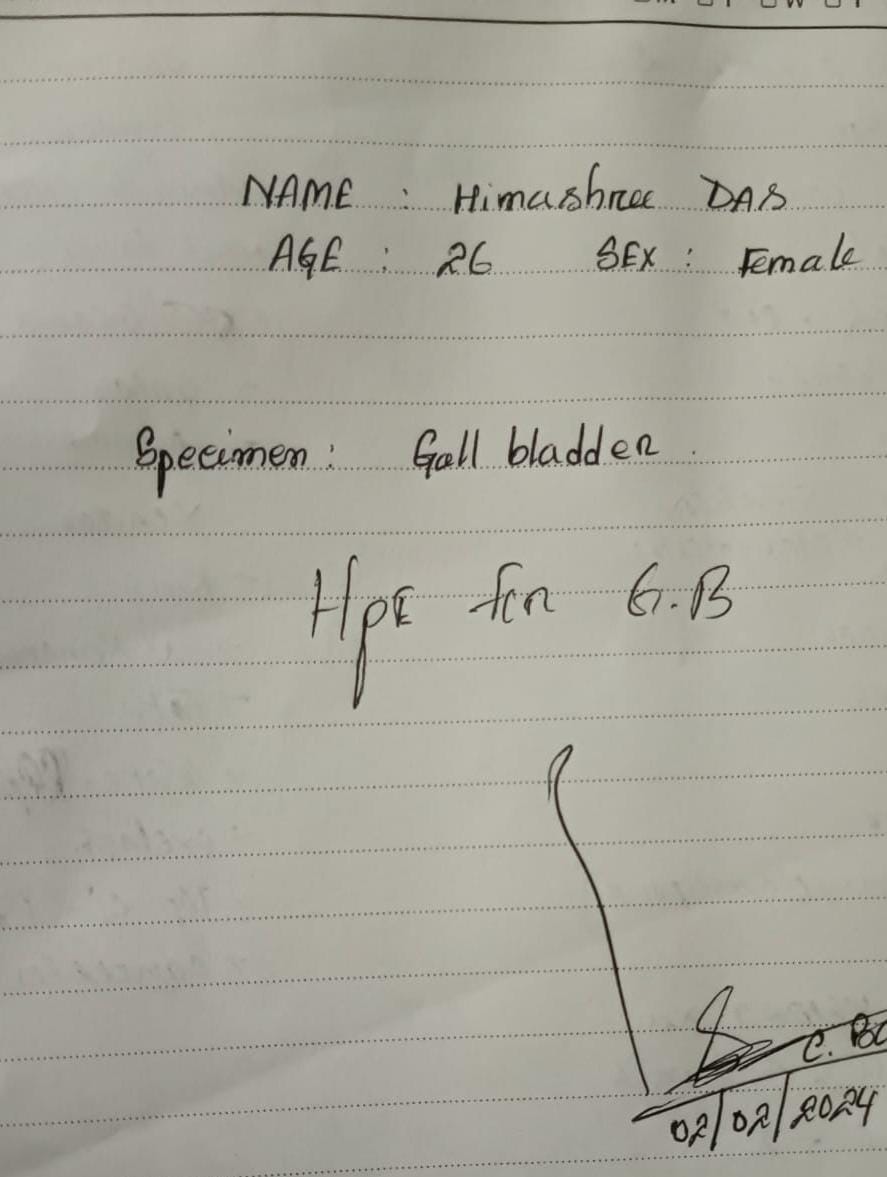 NAME : Himashree DAS
AGE : 26 SEX : Female
Specimen : Gall bladder .
HPE for G.B
C.
02/02/2024